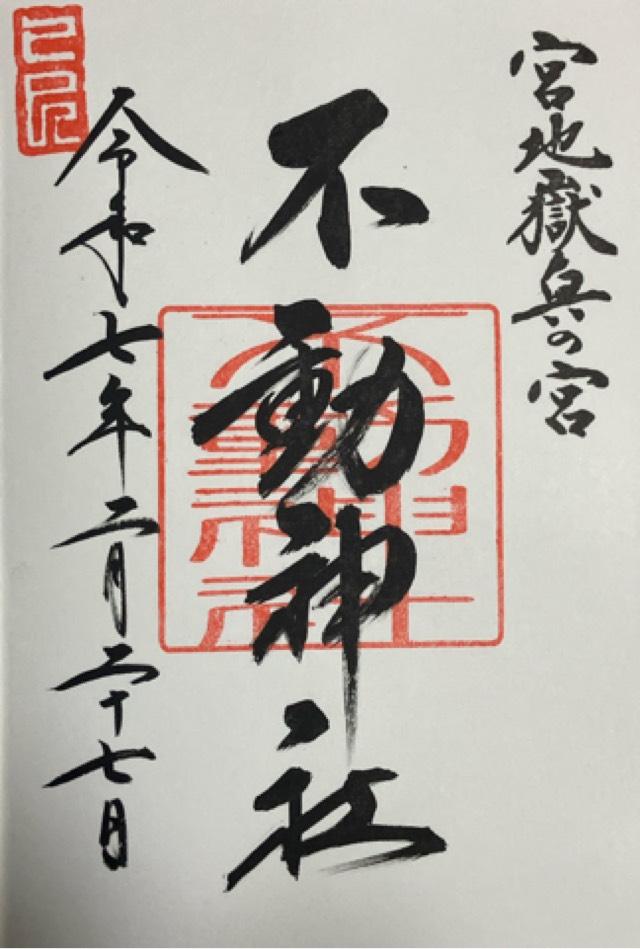 宮地嶽奥の宮
不動神社
不動神社
令和七年二月二十七日